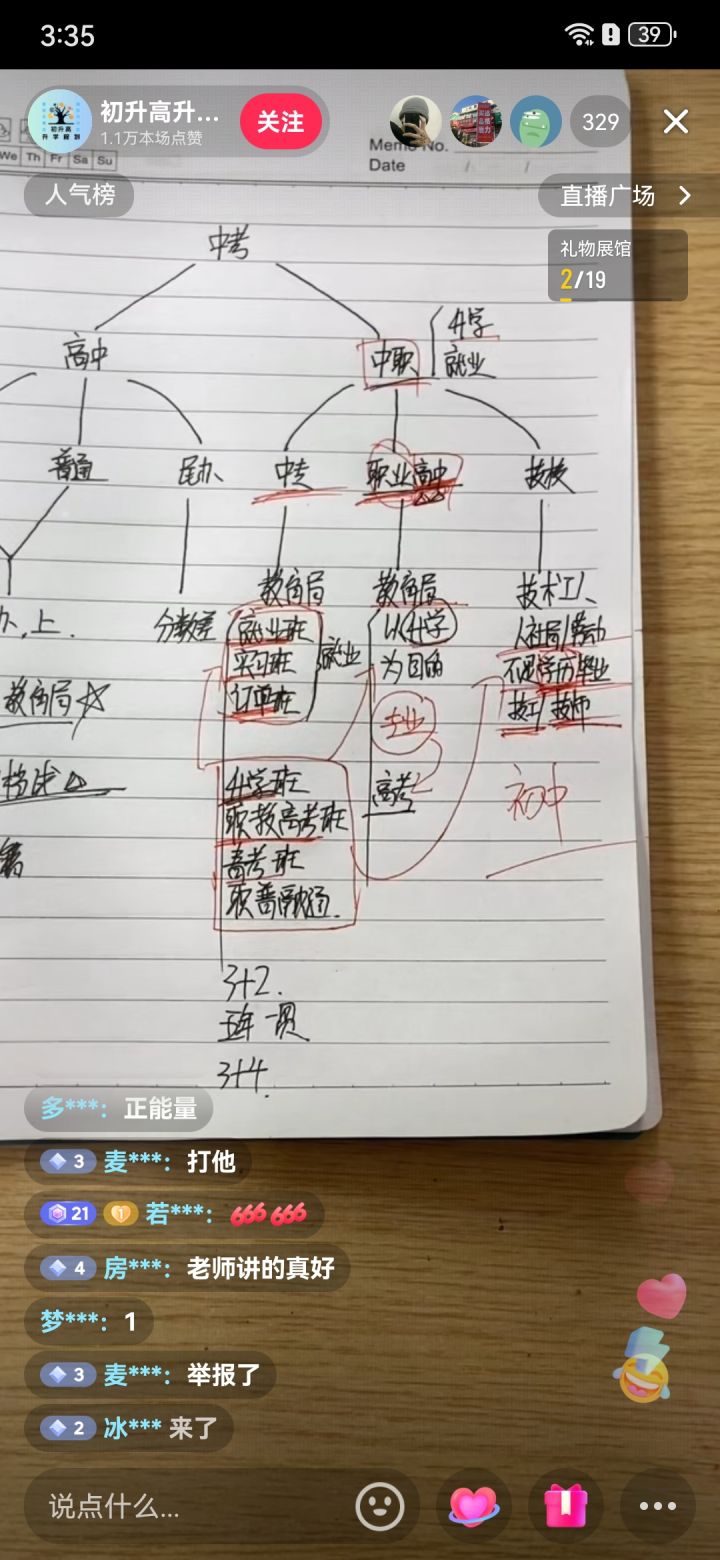 3:35
39
初升高升...
1.1万本场点赞
关注
329
We Th Fr Sa Su
Memo No.
Date / /
人气榜
直播广场
礼物展馆
2/19
中考
高中
中职
升学
就业
普通
民办
中专
职业高中
技校
教育局
教育局
技术工人
办,上.
分数差
就业班
实习班
订单班
就业
以升学
为目的
人社局/劳动
不是学历毕业
技工/技师
教育局☆
专业
升学班
职教高考班
高考班
职普融通.
高考
初中
3+2.
五年一贯
3+4.
多***: 正能量
3 麦***: 打他
21 1 若***: 666 666
4 房***: 老师讲的真好
梦***: 1
3 麦***: 举报了
2 冰*** 来了
说点什么...